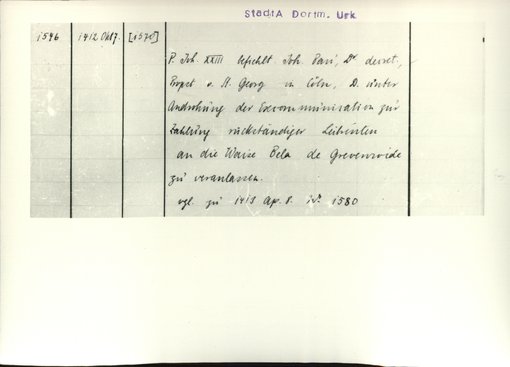 StadtA Dortm. Urk.
1546 1412 Okt 7. [1570]
P. Joh. XXIII befiehlt Joh. Vari, Dr decret.,
Propst v. St. Georg in Cöln, D. unter
Androhung der Excommunication zur
Zahlung rückständiger Leibrenten
an die Waise Bela de Grevenroide
zu veranlassen.
vgl. zu 1418 Ap. 8. No 1580